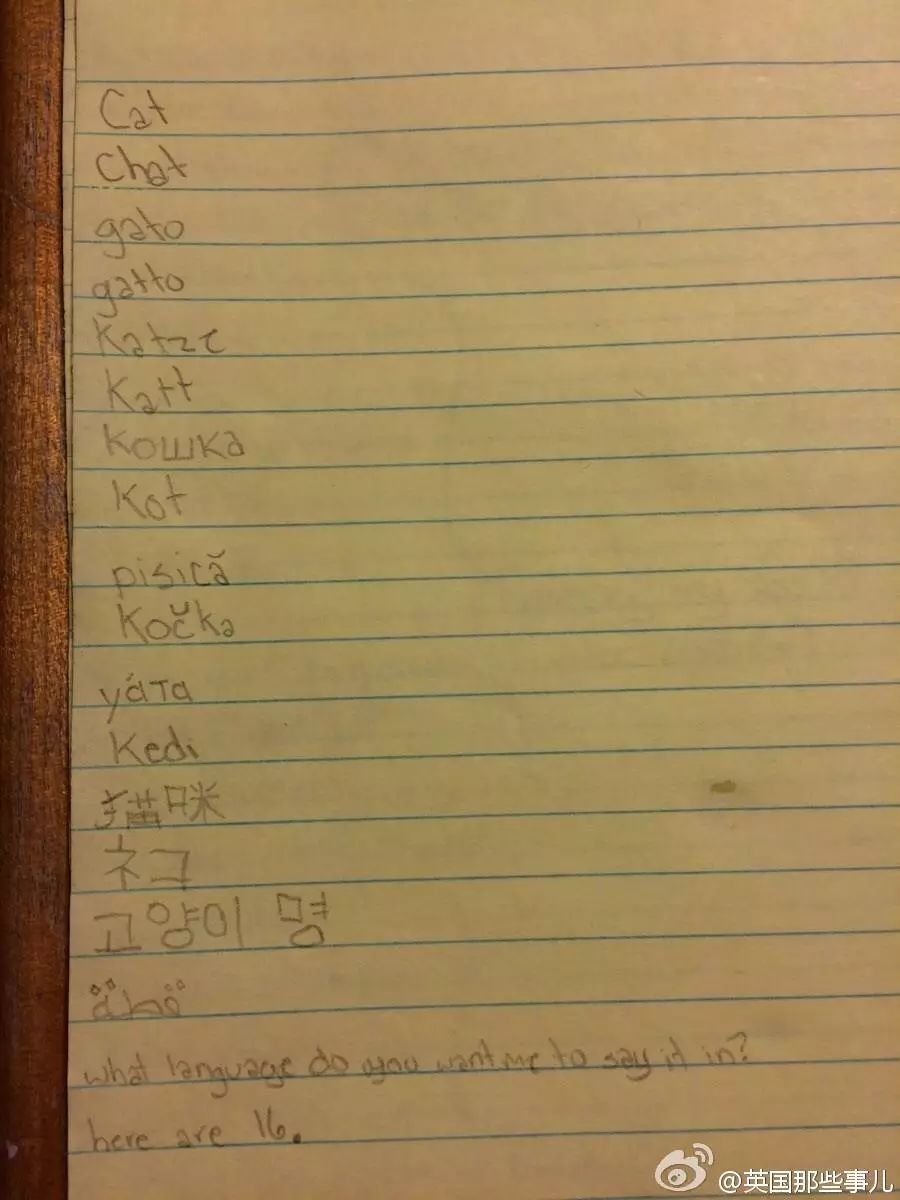 Cat
Chat
gato
gatto
Katze
Katt
кошка
Kot
pisică
Kočka
γάτα
Kedi
猫咪
ネコ
고양이 명
what language do you want me to say it in?
here are 16.
@英国那些事儿